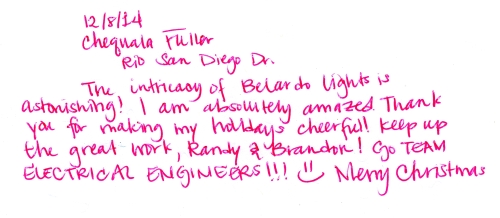 12/8/14
Chequala Fuller
Rio San Diego Dr.
The intricacy of Belardo lights is
astonishing! I am absolutely amazed. Thank
you for making my holidays cheerful! Keep up
the great work, Randy & Brandon! Go TEAM
ELECTRICAL ENGINEERS!!! Merry Christmas